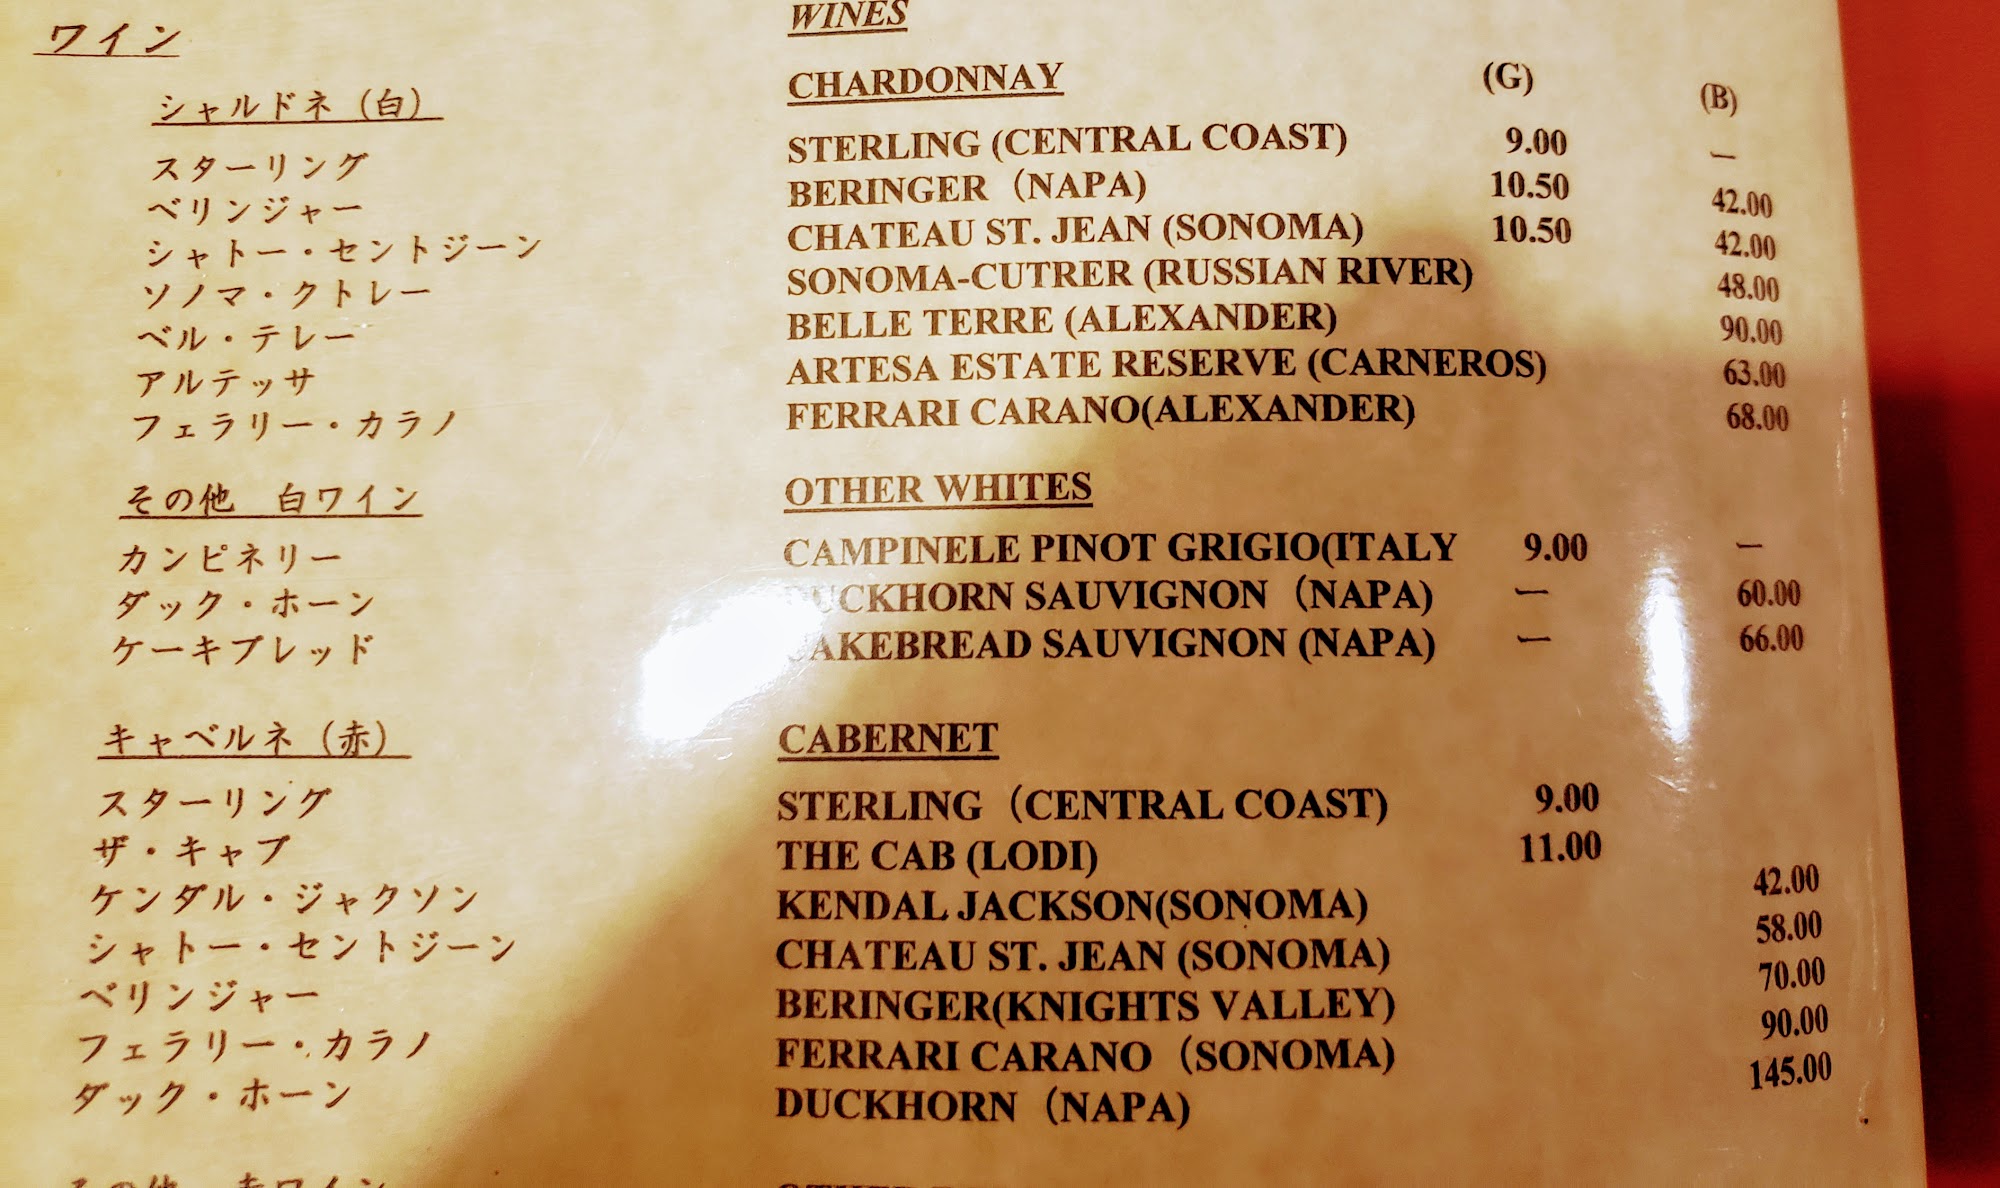 ワイン
シャルドネ（白）
スターリング
ベリンジャー
シャトー・セントジーン
ソノマ・クトレー
ベル・テレー
アルテッサ
フェラリー・カラノ
その他　白ワイン
カンピネリー
ダック・ホーン
ケーキブレッド
キャベルネ（赤）
スターリング
ザ・キャブ
ケンダル・ジャクソン
シャトー・セントジーン
ベリンジャー
フェラリー・カラノ
ダック・ホーン
その他　赤ワイン
WINES
CHARDONNAY (G) (B)
STERLING (CENTRAL COAST) 9.00 ー
BERINGER（NAPA) 10.50 42.00
CHATEAU ST. JEAN (SONOMA) 10.50 42.00
SONOMA-CUTRER (RUSSIAN RIVER) 48.00
BELLE TERRE (ALEXANDER) 90.00
ARTESA ESTATE RESERVE (CARNEROS) 63.00
FERRARI CARANO(ALEXANDER) 68.00
OTHER WHITES
CAMPINELE PINOT GRIGIO(ITALY 9.00 ー
DUCKHORN SAUVIGNON（NAPA) ー 60.00
CAKEBREAD SAUVIGNON (NAPA) ー 66.00
CABERNET
STERLING（CENTRAL COAST) 9.00
THE CAB (LODI) 11.00
KENDAL JACKSON(SONOMA) 42.00
CHATEAU ST. JEAN (SONOMA) 58.00
BERINGER(KNIGHTS VALLEY) 70.00
FERRARI CARANO（SONOMA) 90.00
DUCKHORN（NAPA) 145.00
OTHER